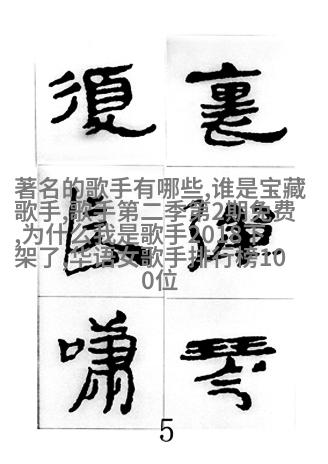 裏彈琴
復長嘯
著名的歌手有哪些,谁是宝藏
歌手,歌手第二季第2期免费
,为什么我是歌手2018下
架了,华语女歌手排行榜10
0位
5